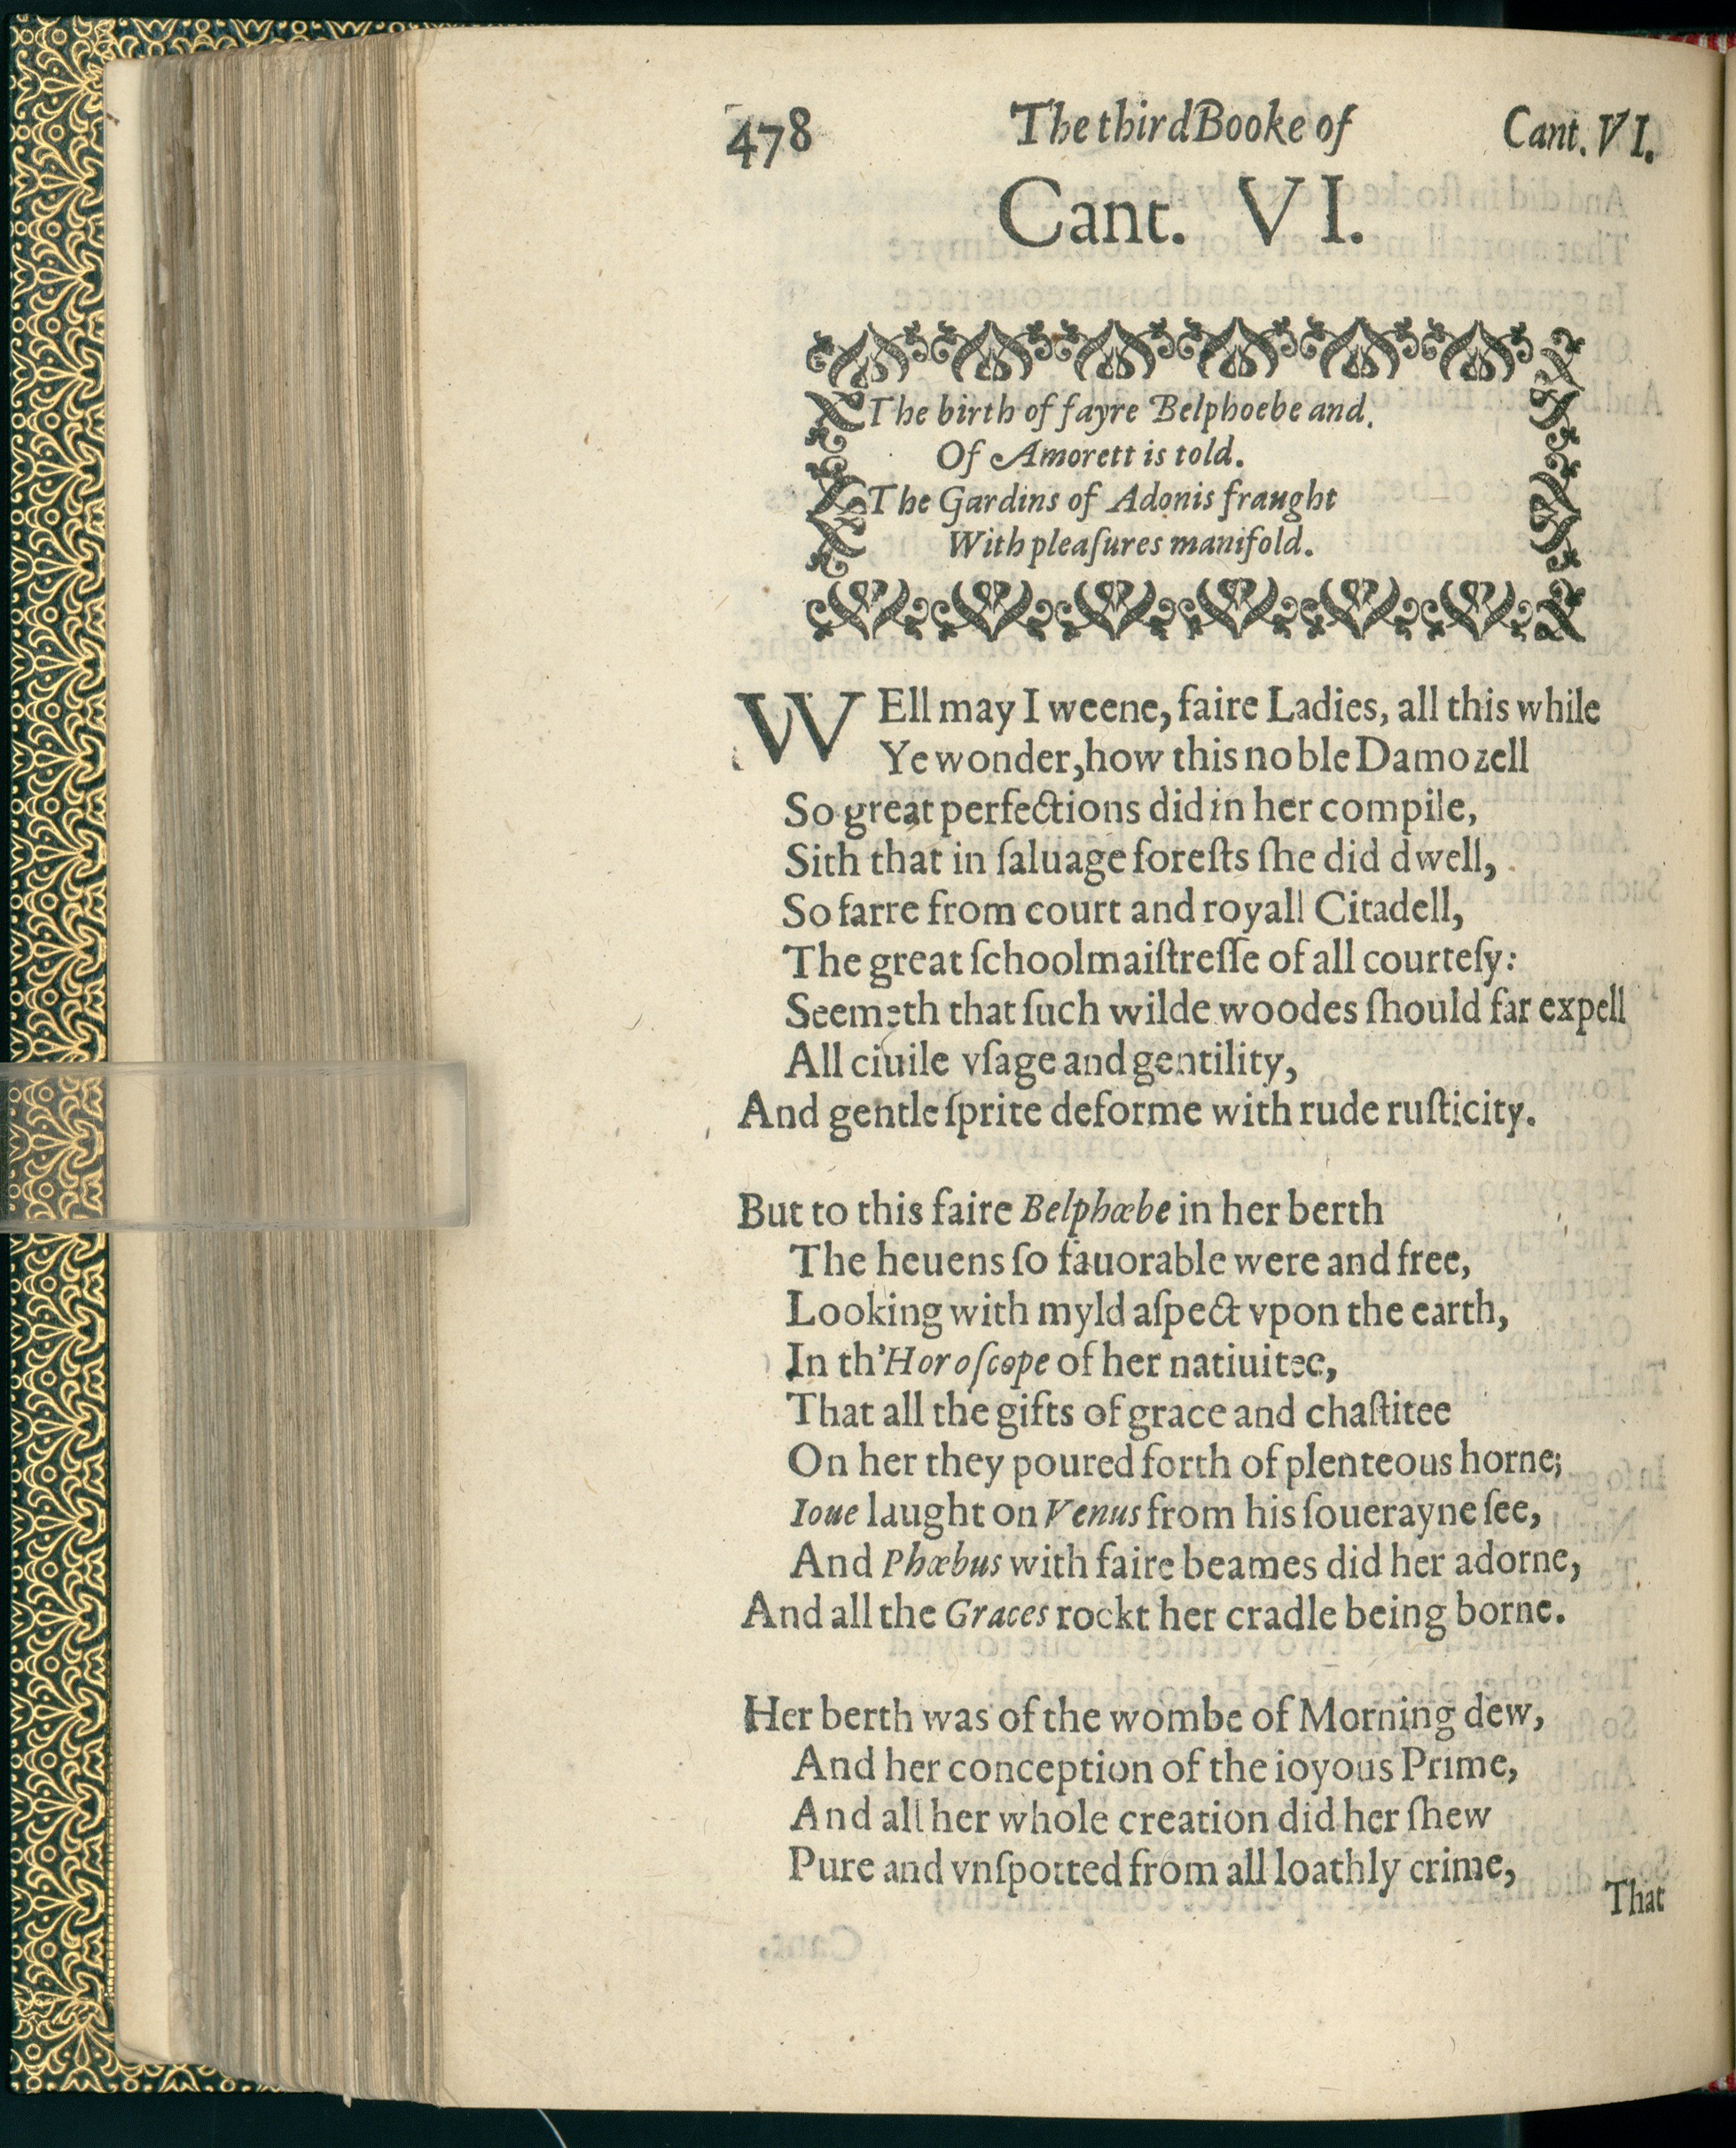 478 The third Booke of Cant. VI.
Cant. VI.
The birth of fayre Belphoebe and.
Of Amorett is told.
The Gardins of Adonis fraught
With pleaſures manifold.
WEll may I weene, faire Ladies, all this while
Ye wonder, how this noble Damozell
So great perfections did in her compile,
Sith that in ſaluage foreſts ſhe did dwell,
So farre from court and royall Citadell,
The great ſchoolmaiſtreſſe of all courteſy:
Seemeth that ſuch wilde woodes ſhould far expell
All ciuile vſage and gentility,
And gentle ſprite deforme with rude ruſticity.
But to this faire Belphœbe in her berth
The heuens ſo fauorable were and free,
Looking with myld aſpect vpon the earth,
In th'Horoſcope of her natiuitee,
That all the gifts of grace and chaſtitee
On her they poured forth of plenteous horne;
Ioue laught on Venus from his ſouerayne ſee,
And Phœbus with faire beames did her adorne,
And all the Graces rockt her cradle being borne.
Her berth was of the wombe of Morning dew,
And her conception of the ioyous Prime,
And all her whole creation did her ſhew
Pure and vnſpotted from all loathly crime,
That